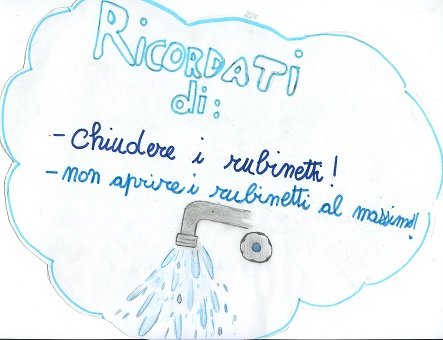 RICORDATI
di:
- chiudere i rubinetti!
- non aprire i rubinetti al massimo!